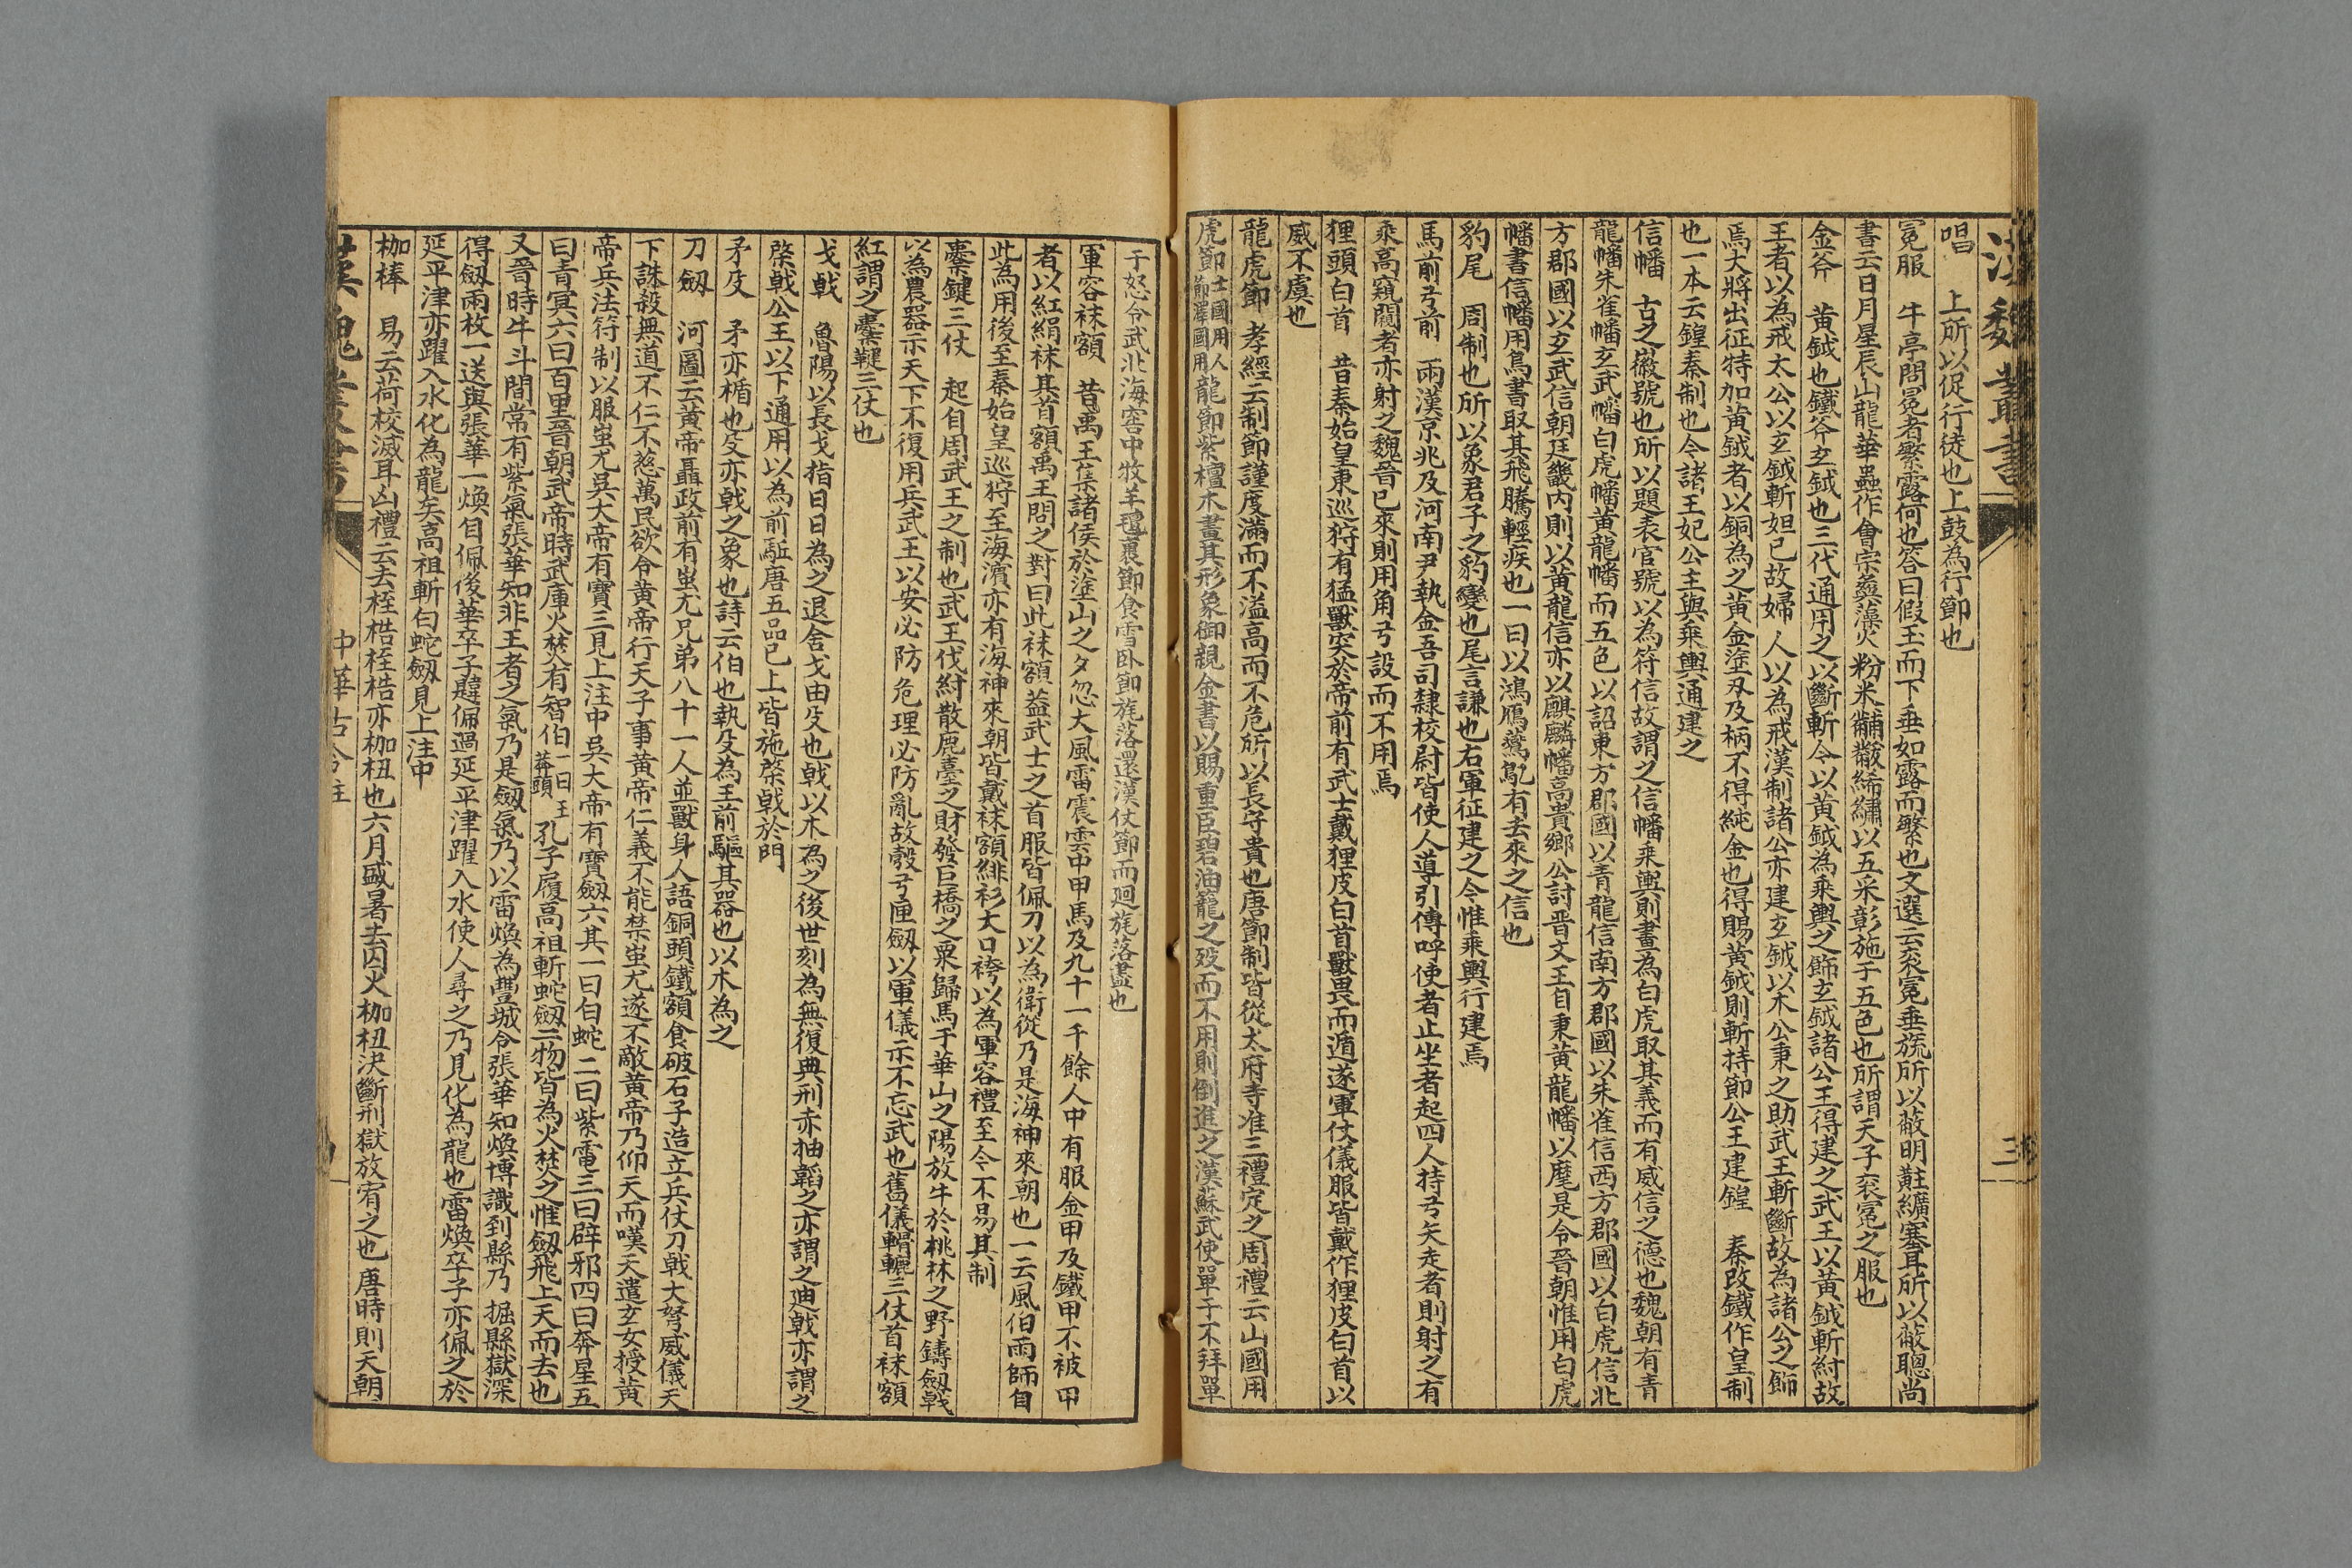 漢魏叢書
三
唱　上所以促行徒也上鼓為行節也
冕服　牛亨問冕者繁露何也答曰假玉而下垂如露而繁也文選云袞冕垂旒所以蔽明黈纊塞耳所以蔽聰尚
書云日月星辰山龍華蟲作會宗彝藻火粉米黼黻絺繡以五采彰施于五色也所謂天子袞冕之服也
金斧　黄鉞也鐵斧玄鉞也三代通用之以斷斬今以黄鉞為乘輿之飾玄鉞諸公王得建之武王以黄鉞斬紂故
王者以為戒太公以玄鉞斬妲己故婦人以為戒漢制諸公亦建玄鉞以木公秉之助武王斬斷故為諸公之飾
焉大將出征特加黄鉞者以銅為之黄金塗刄及柄不得純金也得賜黄鉞則斬持節公王建鍠　秦改鐵作皇制
也一本云鍠秦制也今諸王妃公主與乘輿通建之
信幡　古之徽號也所以題表官號以為符信故謂之信幡乘輿則畫為白虎取其義而有威信之德也魏朝有青
龍幡朱雀幡玄武幡白虎幡黄龍幡而五色以詔東方郡國以青龍信南方郡國以朱雀信西方郡國以白虎信北
方郡國以玄武信朝廷畿内則以黄龍信亦以麒麟幡高貴鄉公討晋文王自秉黄龍幡以麾是今晉朝惟用白虎
幡書信幡用鳥書取其飛騰輕疾也一曰以鴻鴈鷰鳦有去來之信也
豹尾　周制也所以象君子之豹變也尾言謙也右軍征建之今惟乘輿行建焉
馬前弓前　兩漢京兆及河南尹執金吾司隸校尉皆使人導引傳呼使者止坐者起四人持弓矢走者則射之有
乘高窺闞者亦射之魏晉已來則用角弓設而不用焉
狸頭白首　昔秦始皇東巡狩有猛獸突於帝前有武士戴狸皮白首獸畏而遁遂軍仗儀服皆戴作狸皮白首以
威不虞也
龍虎節　孝經云制節謹度滿而不溢高而不危所以長守貴也唐節制皆從太府寺准三禮定之周禮云山國用
虎節士國用人節澤國用龍節紫檀木畫其形象御親金書以賜重臣碧油籠之歿而不用則倒進之漢蘇武使單于不拜單
于怒令武北海窖中牧羊氊裹節食雪卧節旄落還漢仗節而廻旄落盡也
軍容袜額　昔禹王集諸侯於塗山之夕忽大風雷震雲中甲馬及九十一千餘人中有服金甲及鐵甲不被甲
者以紅絹袜其首額禹王問之對曰此袜額蓋武士之首服皆佩刀以為衛從乃是海神來朝也一云風伯雨師自
此為用後至秦始皇巡狩至海濱亦有海神來朝皆戴袜額緋衫大口袴以為軍容禮至今不易其制
櫜鍵三仗　起自周武王之制也武王伐紂散鹿臺之財發巨橋之粟歸馬于華山之陽放牛於桃林之野鑄劔戟
以為農器示天下不復用兵武王以安必防危理必防亂故彀弓匣劔以軍儀示不忘武也舊儀轒轆三仗首袜額
紅謂之櫜鞬三仗也
戈戟　魯陽以長戈指日日為之退舍戈由殳也戟以木為之後世刻為無復典刑赤抽韜之亦謂之迪戟亦謂之
棨戟公王以下通用以為前駈唐五品已上皆施棨戟於門
矛殳　矛亦楯也殳亦戟之象也詩云伯也執殳為王前驅其器也以木為之
刀劔　河圖云黄帝聶政前有蚩尤兄弟八十一人並獸身人語銅頭鐵額食破石子造立兵仗刀戟大弩威儀天
下誅殺無道不仁不慈萬民欲令黄帝行天子事黄帝仁義不能禁蚩尤遂不敵黄帝乃仰天而嘆天遣玄女授黄
帝兵法符制以服蚩尤吳大帝有寶三見上注中吳大帝有寶劔六其一曰白蛇二曰紫電三曰辟邪四曰奔星五
曰青冥六曰百里晉朝武帝時武庫火焚有智伯一曰王莽頭孔子履高祖斬蛇劔二物皆為火焚之惟劔飛上天而去也
又晉時牛斗間常有紫氣張華知非王者之氣乃是劔氣乃以雷煥為豐城令張華知煥博識到縣乃掘縣獄深
得劔兩枚一送與張華一煥自佩後華卒子韙佩過延平津躍入水使人尋之乃見化為龍也雷煥卒子亦佩之於
延平津亦躍入水化為龍矣高祖斬白蛇劔見上注中
枷棒　易云荷校滅耳凶禮云去桎梏桎梏亦枷杻也六月盛暑去囚火枷杻決斷刑獄放宥之也唐時則天朝
漢魏叢書
中華古今注